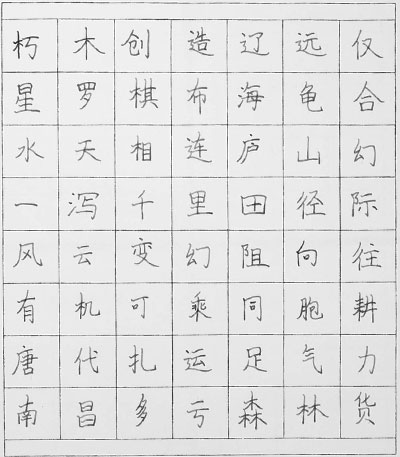 朽木创造辽远仅
星罗棋布海龟合
水天相连庐山幻
一泻千里田径际
风云变幻阻向往
有机可乘同胞耕
唐代扎运足气力
南昌多亏森林货